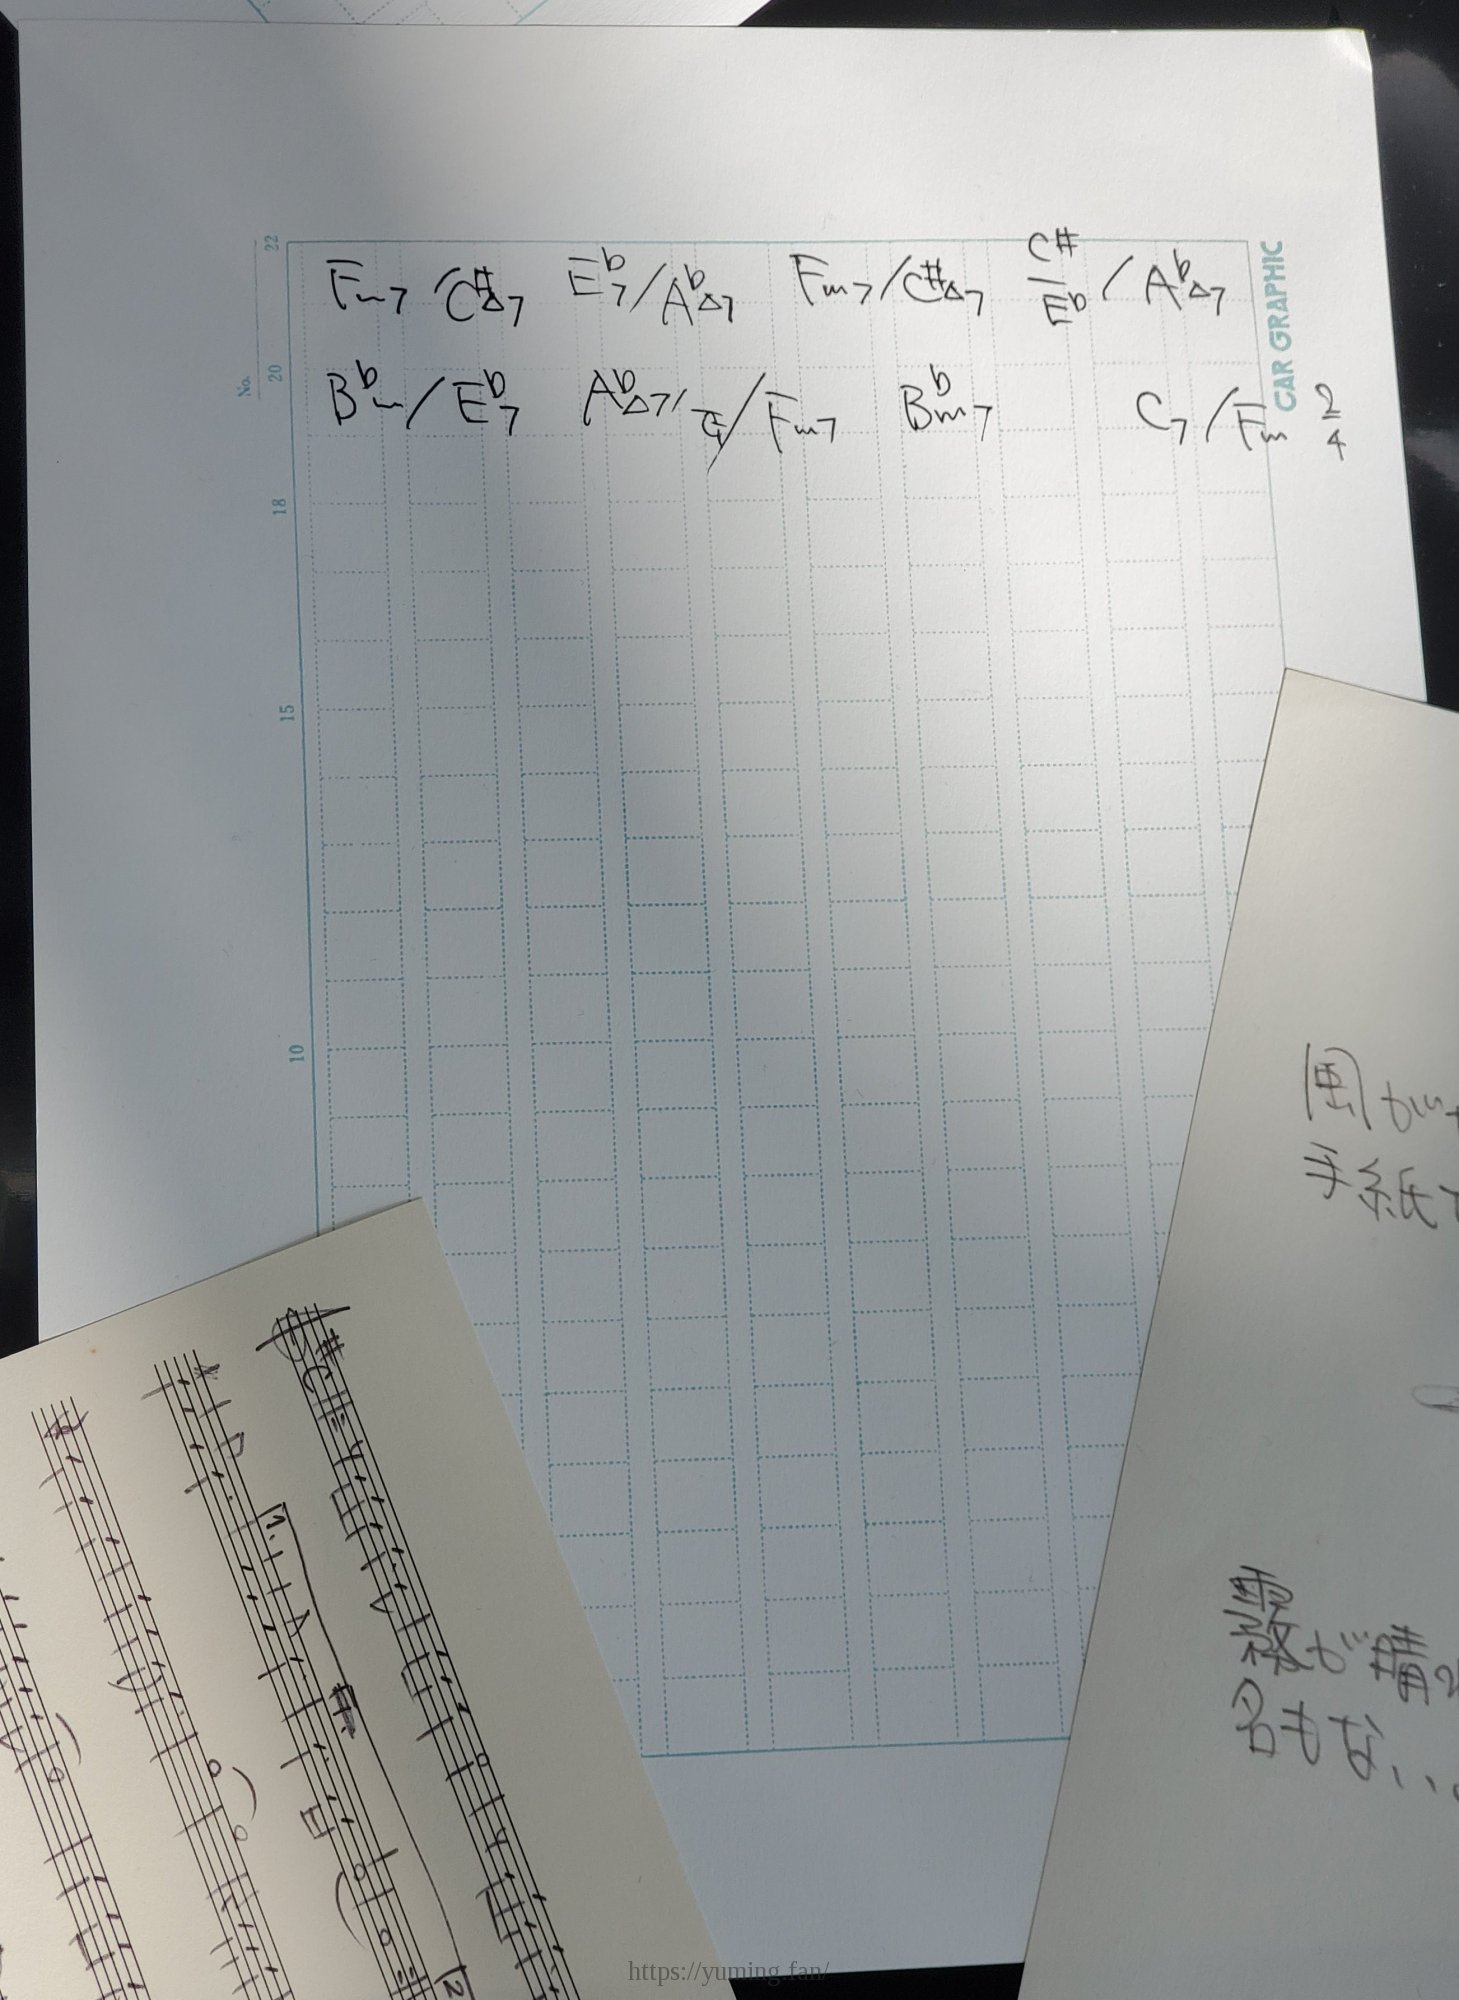 Fm7 / C#△7 E♭7 / A♭△7 Fm7 / C#△7 C#/E♭ / A♭△7
B♭m / E♭7 A♭△7 / /G / Fm7 B♭m7 C7 / Fm 2/4
CAR GRAPHIC
No.
22
20
18
15
10
風が
手紙で
が
名もない
1.
2
https://yuming.fan/